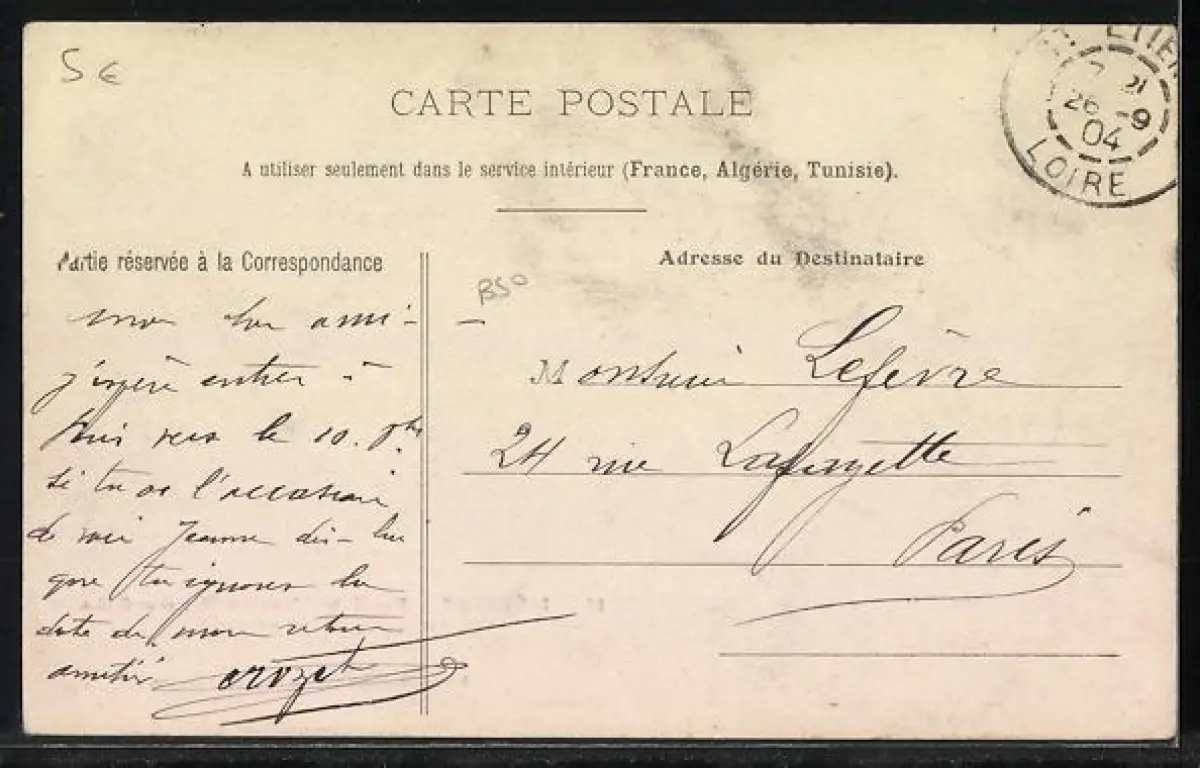 5 €
CARTE POSTALE
A utiliser seulement dans le service intérieur (France, Algérie, Tunisie).
ETIEN
26 -9
04
LOIRE
Partie réservée à la Correspondance
mon bon ami -
j'espère entrer à
Paris vers le 10. 
si tu as l'occasion
de voir Jeanne dis-lui
que tu ignores la
date de mon retour
amitié
Adresse du Destinataire
BSO
Monsieur Lefèvre
24 rue Lafayette
Paris